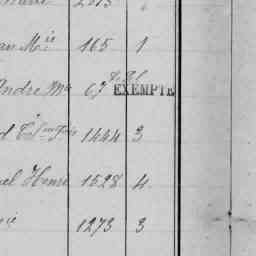 2015
an Mie 165 1
André Me 67 EXEMPTE
1444 3
el Henri 1528 4
ie 1273 3